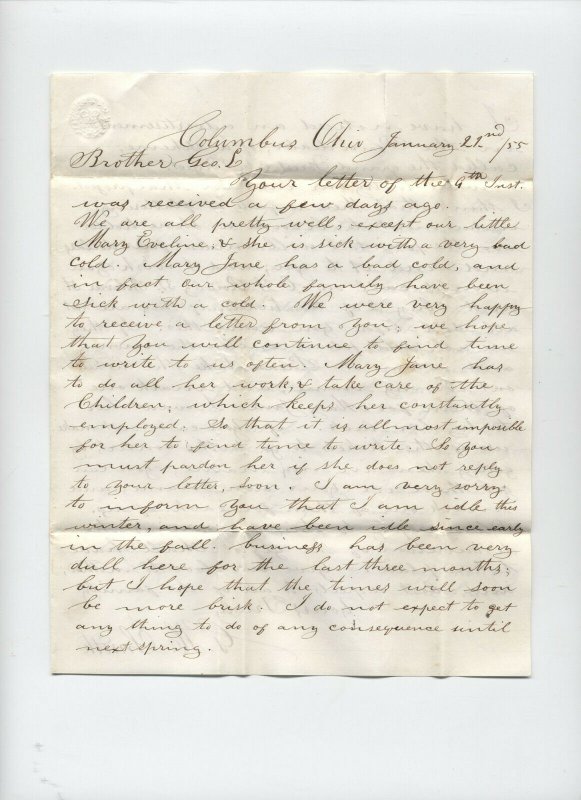 Columbus Ohio January 22nd/55
Brother Geo. L
Your letter of the 9th Inst.
was received a few days ago.
We are all pretty well, except our little
Mary Eveline, & she is sick with a very bad
cold. Mary Jane has a bad cold, and
in fact our whole family have been
sick with a cold. We were very happy
to receive a letter from you, we hope
that you will continue to find time
to write to us often. Mary Jane has
to do all her work, & take care of the
Children, which keeps her constantly
employed. So that it is allmost imposible
for her to find time to write. So you
must pardon her if she does not reply
to your letter, soon. I am very sorry
to inform you that I am idle this
winter, and have been idle since early
in the fall. business has been very
dull here for the last three months;
but I hope that the times will soon
be more brisk. I do not expect to get
any thing to do of any consequence until
next spring.